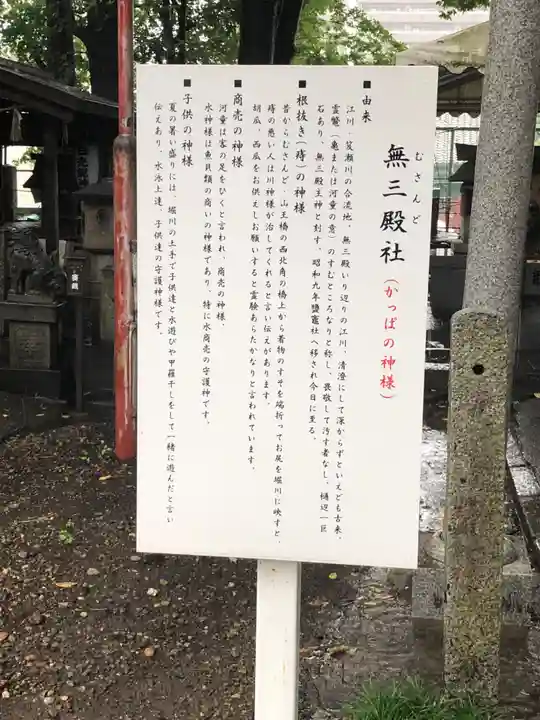 むさんど
無三殿社
(かっぱの神様)
■由来
江川・笈瀬川の合流地、無三殿いり辺りの江川、清澄にして深からずといえども古来、
霊鼈(亀または河童の意)のすむところなりと称し、畏敬して汚す者なし、樋辺一巨
石あり、無三殿主神と刻す、昭和九年鹽竈社へ移され今日に至る。
■根抜き(痔)の神様
昔からむさんど、山王橋の西北角の橋上から着物のすそを端折ってお尻を堀川に映すと、
痔の悪い人は川神様が治してくれると言い伝えがあります。
胡瓜、西瓜をお供えしお願いすると霊験あらたかなりと言われています。
■商売の神様
河童は客の足をひくと言われ、商売の神様。
水神様は魚貝類の商いの神様であり、特に水商売の守護神です。
■子供の神様
夏の暑い盛りには、堀川の土手で子供達と水遊びや甲羅干しをして一緒に遊んだと言い
伝えあり、水泳上達、子供達の守護神様です。